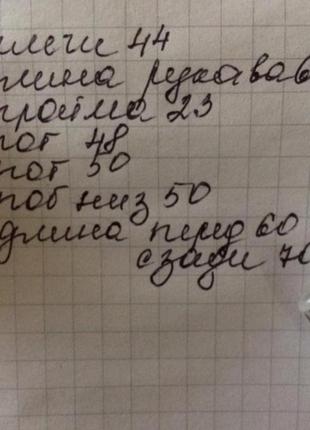 плечи 44
длина рукава 6
пройма 23
пог 48
пот 50
поб низ 50
длина перед 60
сзади 70